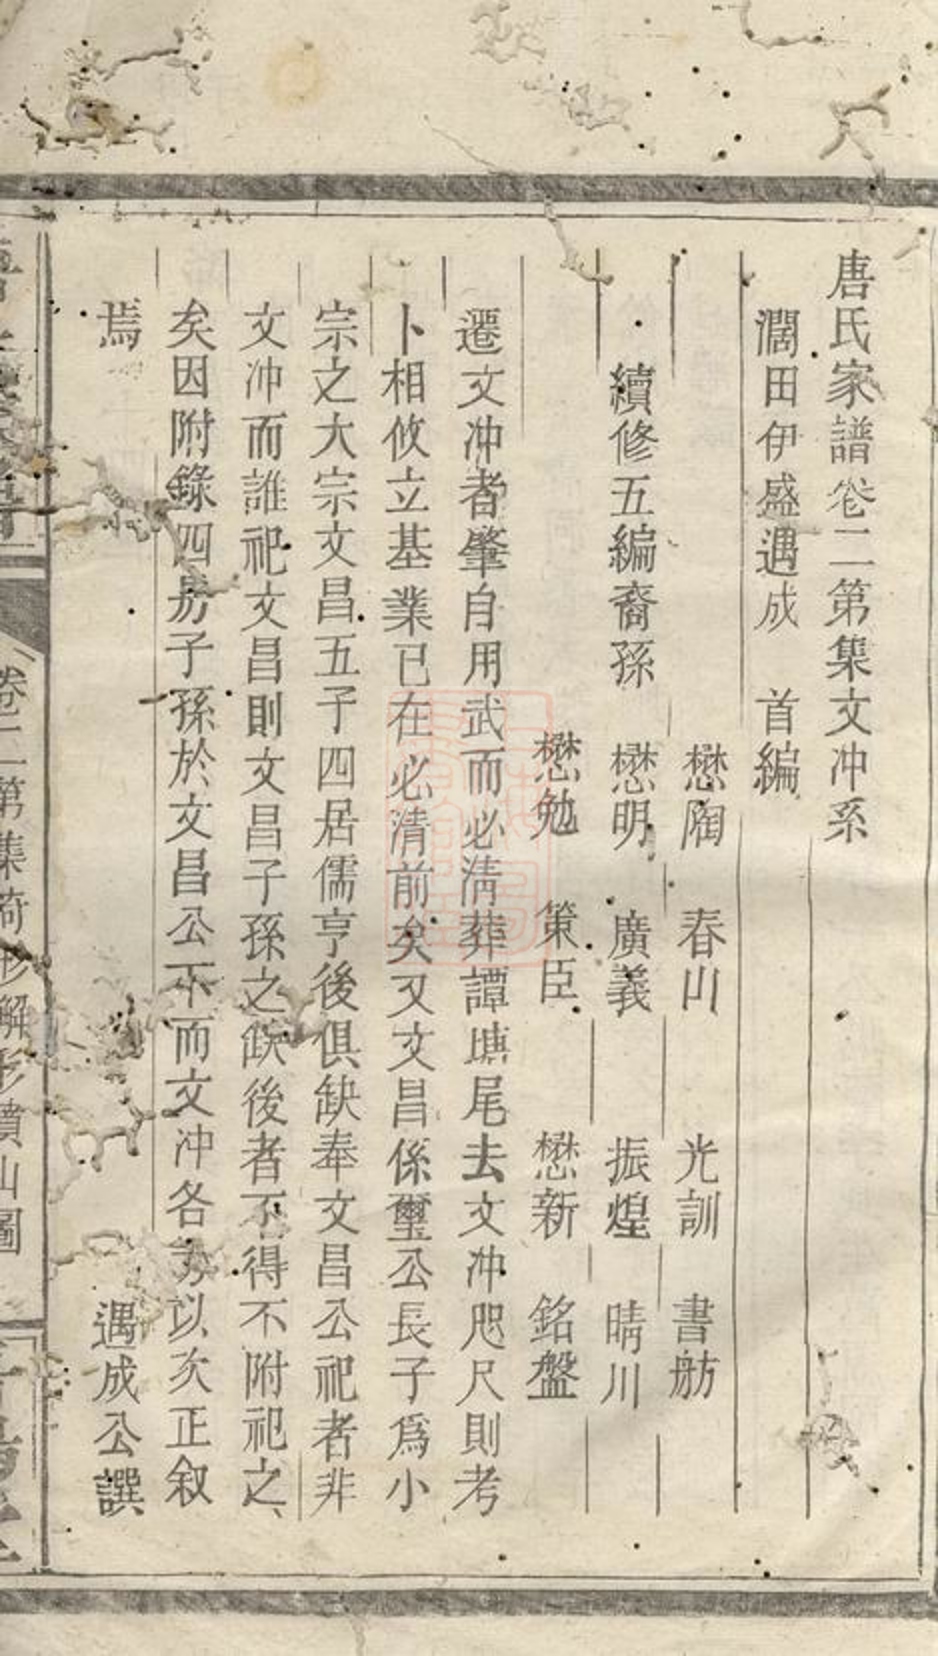 唐氏家譜卷二第集文冲系
濶田伊盛遇成　首編
懋陶　春山　光訓　書舫
續修五編裔孫　懋明　廣義　振煌　晴川
懋勉　策臣　懋新　銘盤
遷文冲者肇自用武而必淸葬譚塘尾去文冲咫尺則考
卜相攸立基業已在必清前矣又文昌係璽公長子爲小
宗之大宗文昌五子四居儒亨後俱缺奉文昌公祀者非
文冲而誰祀文昌則文昌子孫之缺後者不得不附祀之
矣因附錄四房子孫於文昌公下而文冲各以次正叙
焉　遇成公譔
卷二第集 形解 山圖